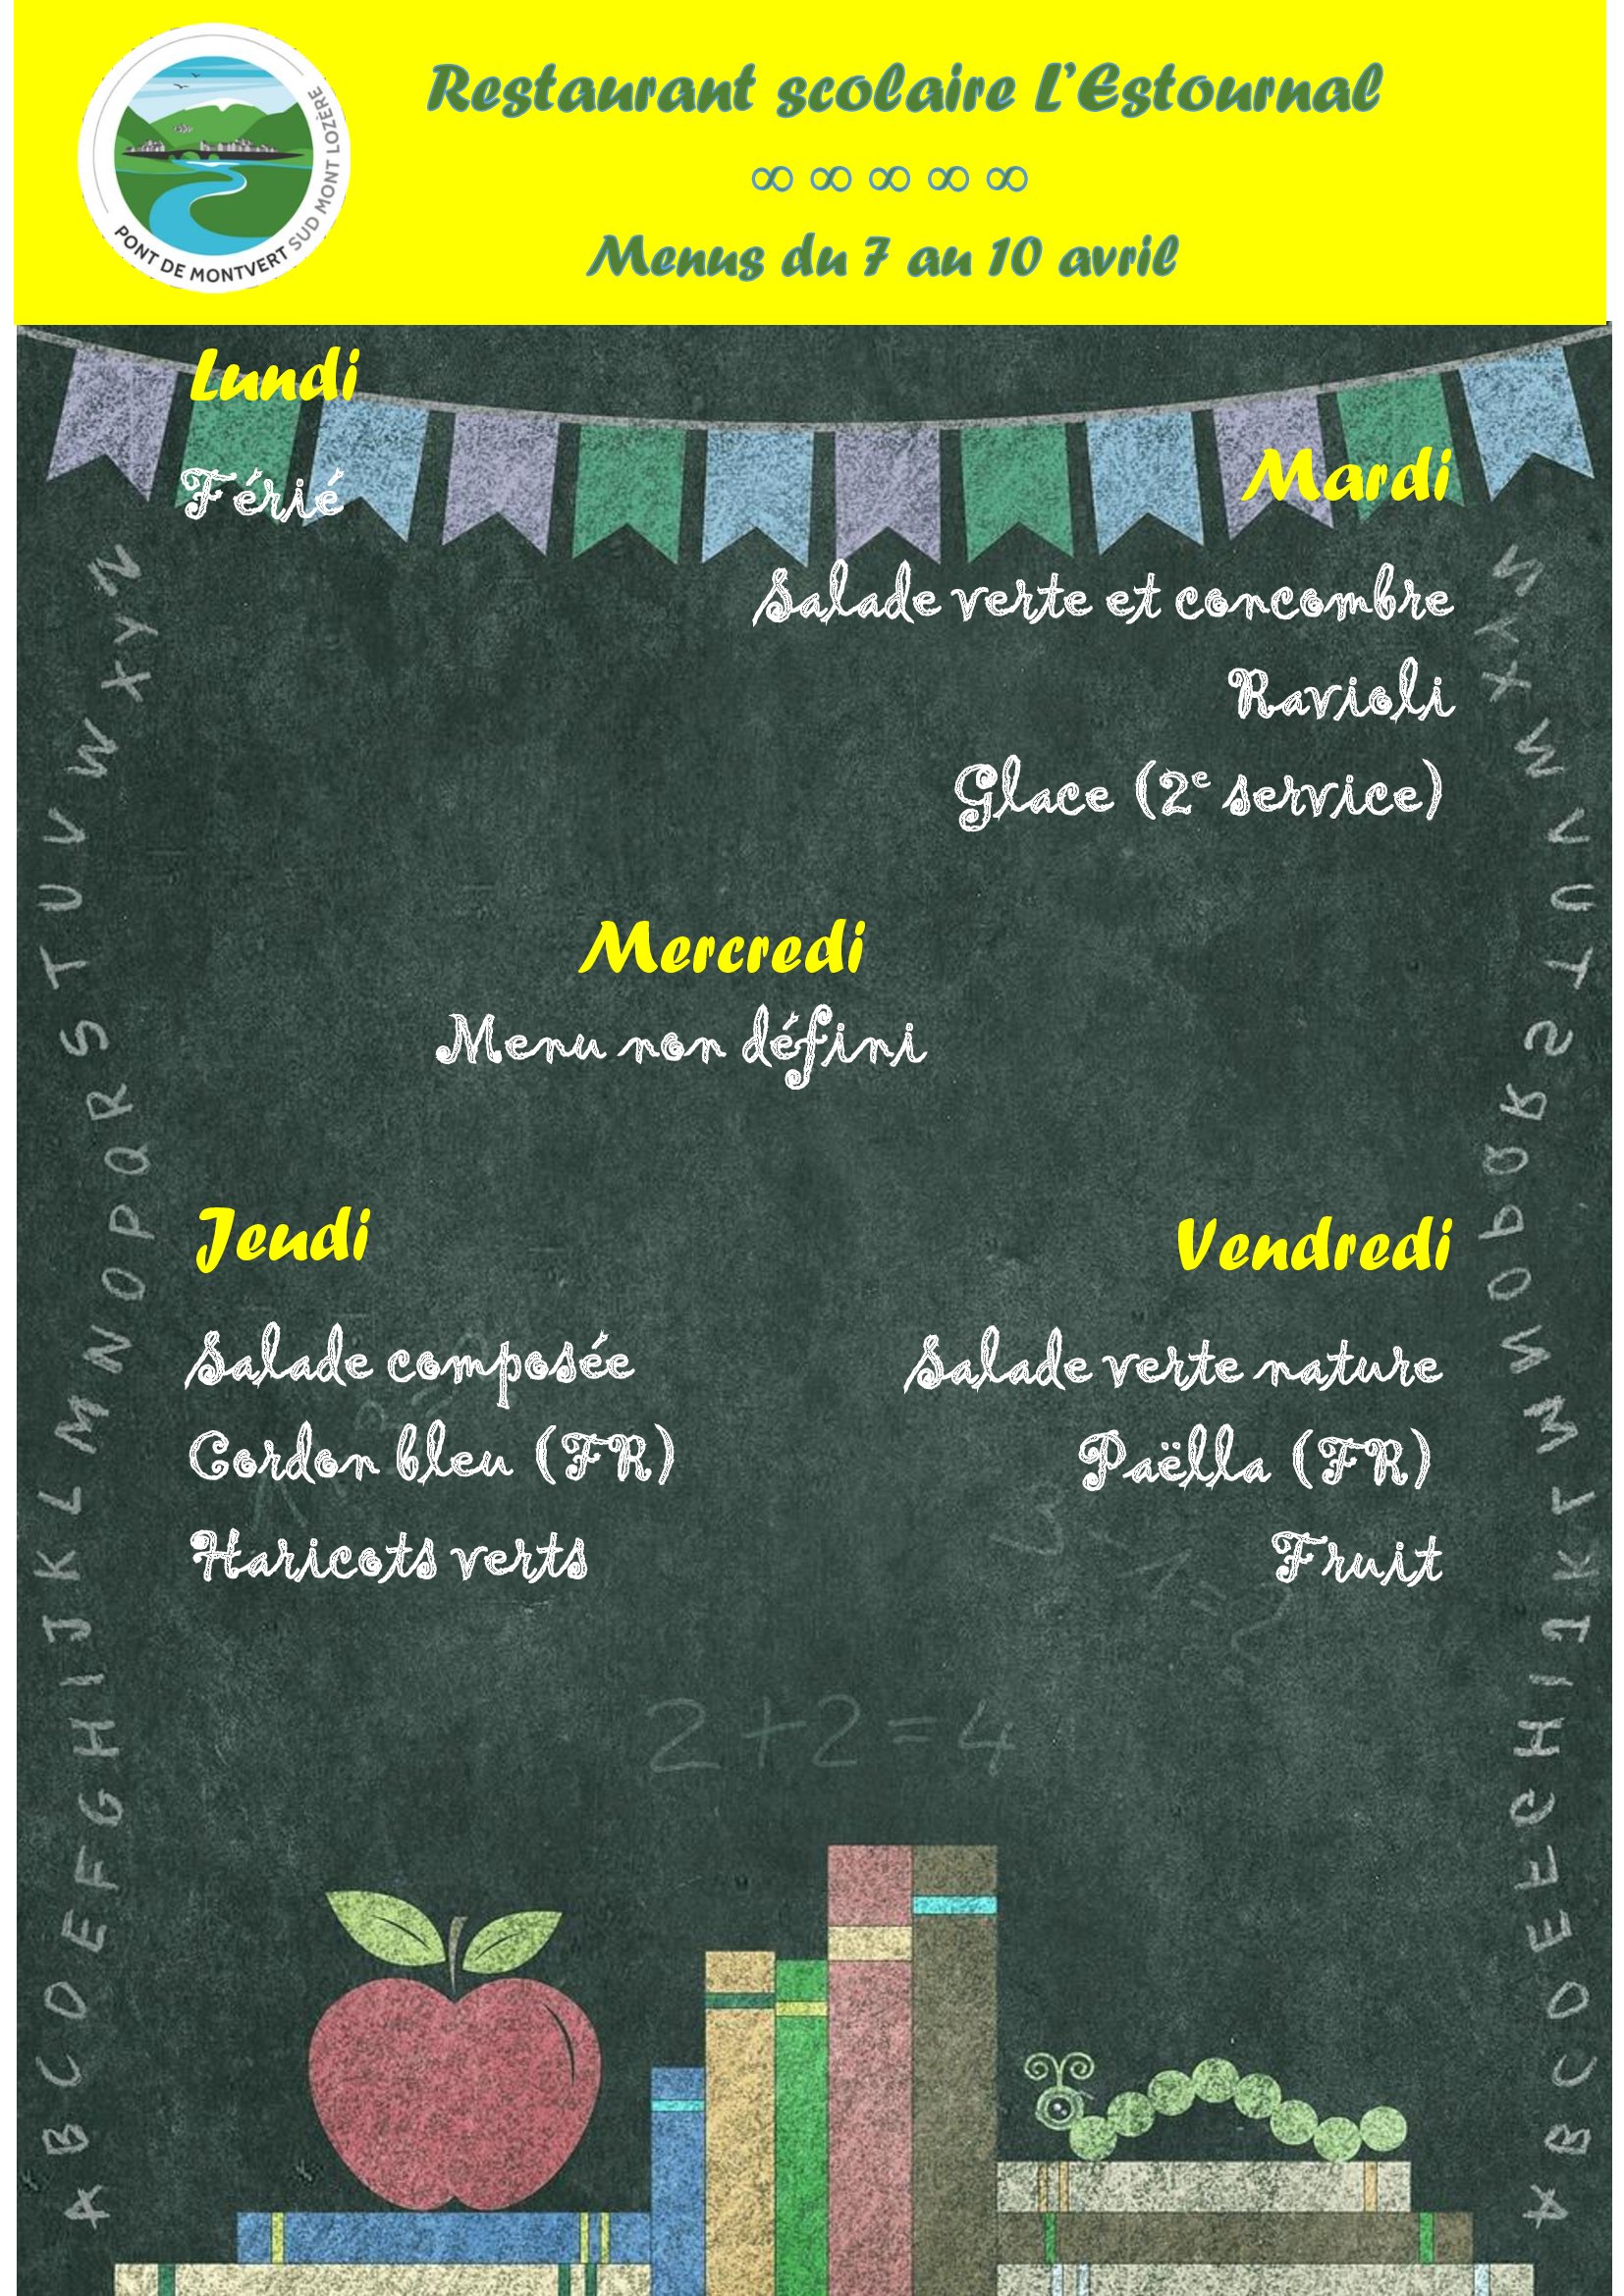 Restaurant scolaire L'Estournal
∞ ∞ ∞ ∞ ∞
Menus du 7 au 10 avril
PONT DE MONTVERT SUD MONT LOZÈRE
Lundi
Férié
Mardi
Salade verte et concombre
Ravioli
Glace (2e service)
Mercredi
Menu non défini
Jeudi
Salade composée
Cordon bleu (FR)
Haricots verts
Vendredi
Salade verte nature
Paëlla (FR)
Fruit
2+2=4